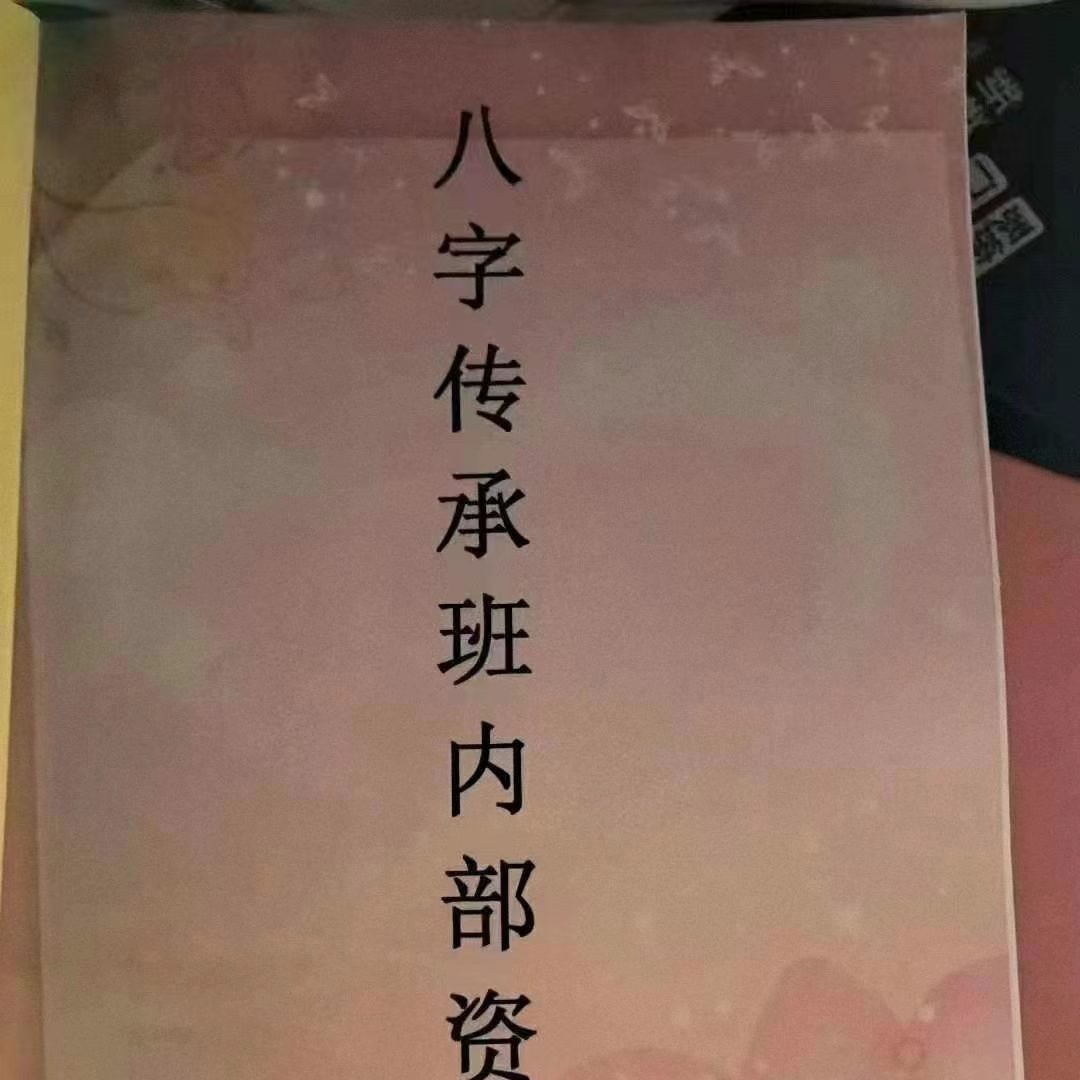 八字传承班内部资